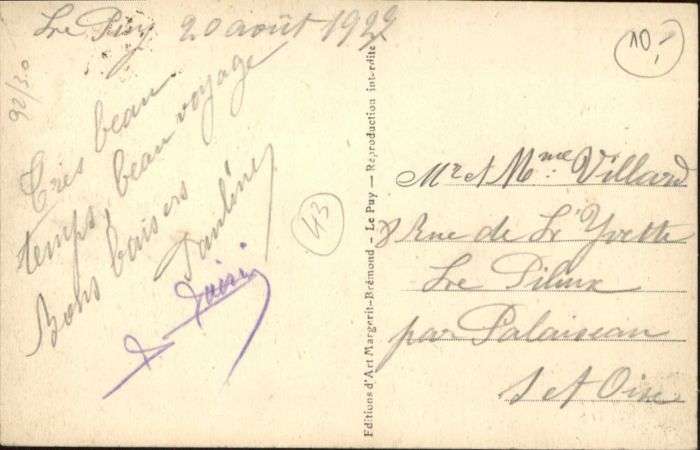 Le Puy 20 août 192
Très beau
temps, beau voyage
Bons baisers
Pauline
92/30
43
10,-
Editions d'Art Margerit-Brémond - Le Puy - Reproduction interdite
Mr et Mme Villard
8 Rue de L'Yvette
Le Pileux
par Palaiseau
S et Oise